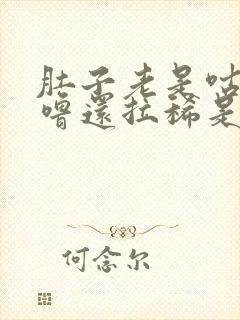 肚子老是咕
噜还拉稀是
何念尔